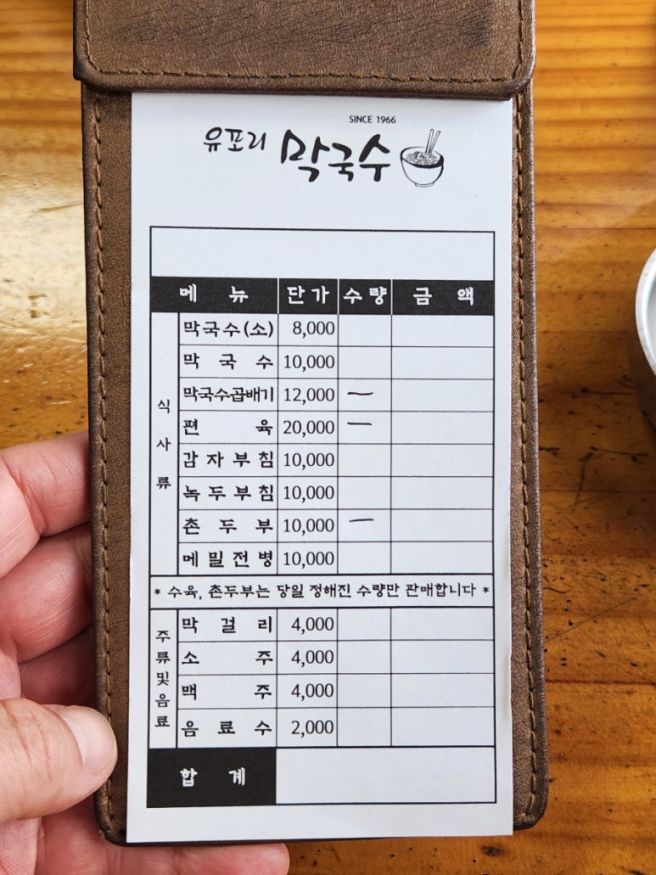 SINCE 1966
유포리 막국수
메 뉴 단가 수량 금 액
식사류
막국수(소) 8,000
막 국 수 10,000
막국수곱배기 12,000 一
편 육 20,000 一
감자부침 10,000
녹두부침 10,000
촌 두 부 10,000 一
메밀전병 10,000
* 수육, 촌두부는 당일 정해진 수량만 판매합니다 *
주류및음료
막 걸 리 4,000
소 주 4,000
맥 주 4,000
음 료 수 2,000
합 계